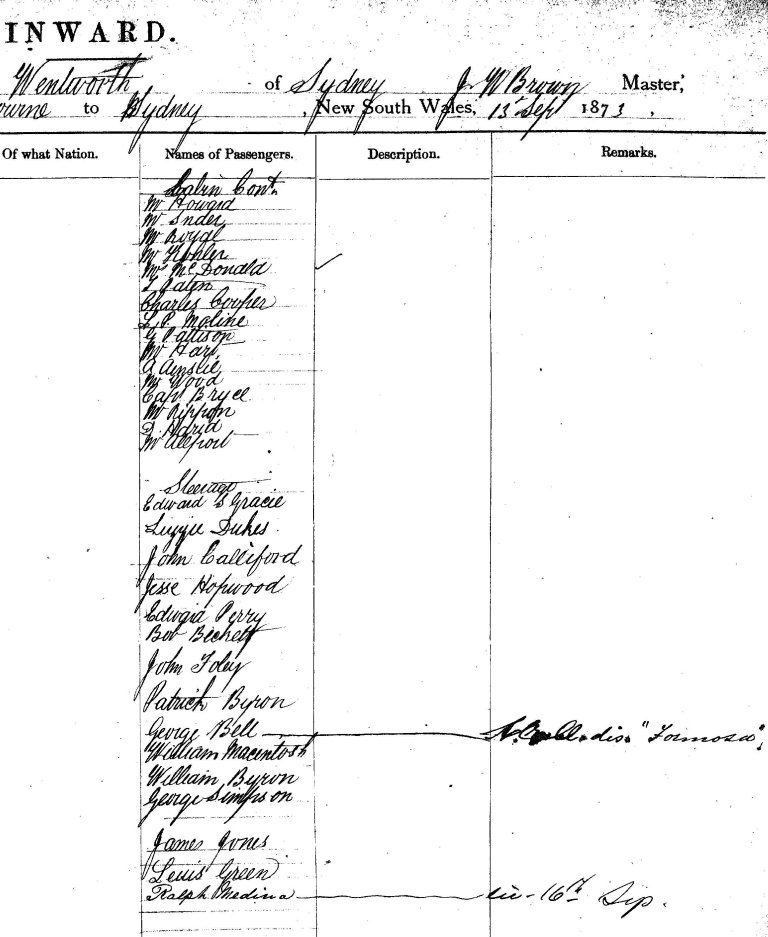 INWARD.
Wentworth of Sydney J. W Brown Master,
ourne to Sydney , New South Wales, 13 Sept 1873 .
Of what Nation. Names of Passengers. Description. Remarks.
Cabin Cont.
Mr Howard
Mr Snder
Mr Royal
Mr Kohler
McDonald
Charles Cooper
P. Moline
G Pattison
Mr Hart
A Ainslie
Mr Wood
Capt Bryce
Mr Rippon
Mr Allport
Steerage
Edward S Gracie
Lizzie Dukes
John Calliford
Jesse Hopwood
Edwgia Perry
Bob Beckett
John Foley
Patrick Byron
George Bell dis. "Formosa",
William Macintosh
William Byron
George Simpson
James Jones
Leuis Green
Ralph Medina 16th Sep.